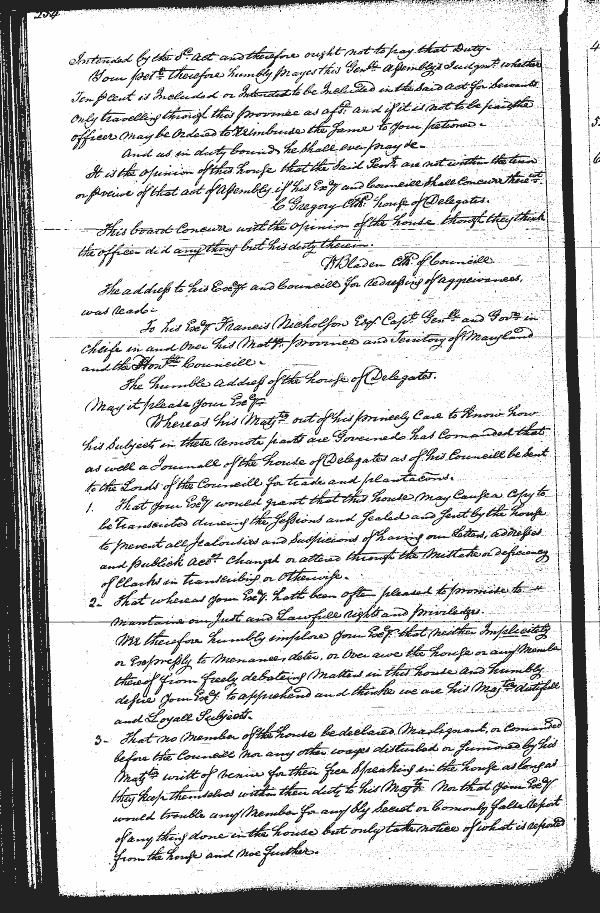 254
Intended by the sd. Act and therefore ought not to pay that Duty.
Your petr. therefore humbly prayes this Genll. Assembly's Judgmt. whether
Ten p Cent is Included or Intended to be Included in the said act for Servants
only travelling through this province as afd. and if it is not to be paid the
officer may be Ordered to Reimburse the same to your petioner.
And as in duty bound he shall ever pray &c.
It is the opinion of this house that the said Servts. are not within the
or of that act of Assembly if his Exy. and Councill shall Concurr thereto.
C Gregory Clk. house of Delegates.
This board Concurrs with the opinion of the house though they think
the officer did any thing but his duty therein.
W Bladen Clk. of Councill
The address to his Excy. and Councill for redressing of aggreivances,
was read.
To his Exy. Francis Nicholson Esqr. Capt. Genll. and Govr. in
Cheife in and Over his Matys. province and Territory of Maryland
and the Honble. Councill.
The humble address of the house of Delegates.
May it please your Exy.
Whereas his Majty. out of his princely Care to Know how
his Subjects in these remote parts are Governed has Comanded that
as well a Journall of the house of Delegates as of his Councill be Sent
to the Lords of the Councill for trade and plantacons.
1. That your Exy. would grant that this house may Cause a Copy to
be Transcribed dureing the Sessions and Sealed and Sent by the house
to prevent all Jealousies and Suspicions of having our Letters, addresses
and publick Accots. Changed or altered through the Mistake or deficiency
of Clarks in transcribing or Otherwise.
2. That whereas your Exy. hath been often pleased to promise to
mantaine our Just and Lawfull rights and priviledges.
We therefore humbly implore your Exy. that neither Implicitely
or Expressly to menance, deter, or Over awe the house or any Member
thereof from freely debateing Matters in this house and humbly
desire your Exy. to apprehend and thinke we are his Majtys. dutifull
and Loyall Subjects.
3. That no Member of the house be declared Malignant, or Comanded
before the Councill nor any other wayes disturbed or Sumoned by his
Majtys. writt of Venire for their free Speaking in the house as long as
they keep themselves within their duty to his Majty. Nor that your Exy.
would trouble any Member for any bly Secret or Comonly false report
of any thing done in the house but only take notice of what is reported
from the house and not further.
4.
5.
6